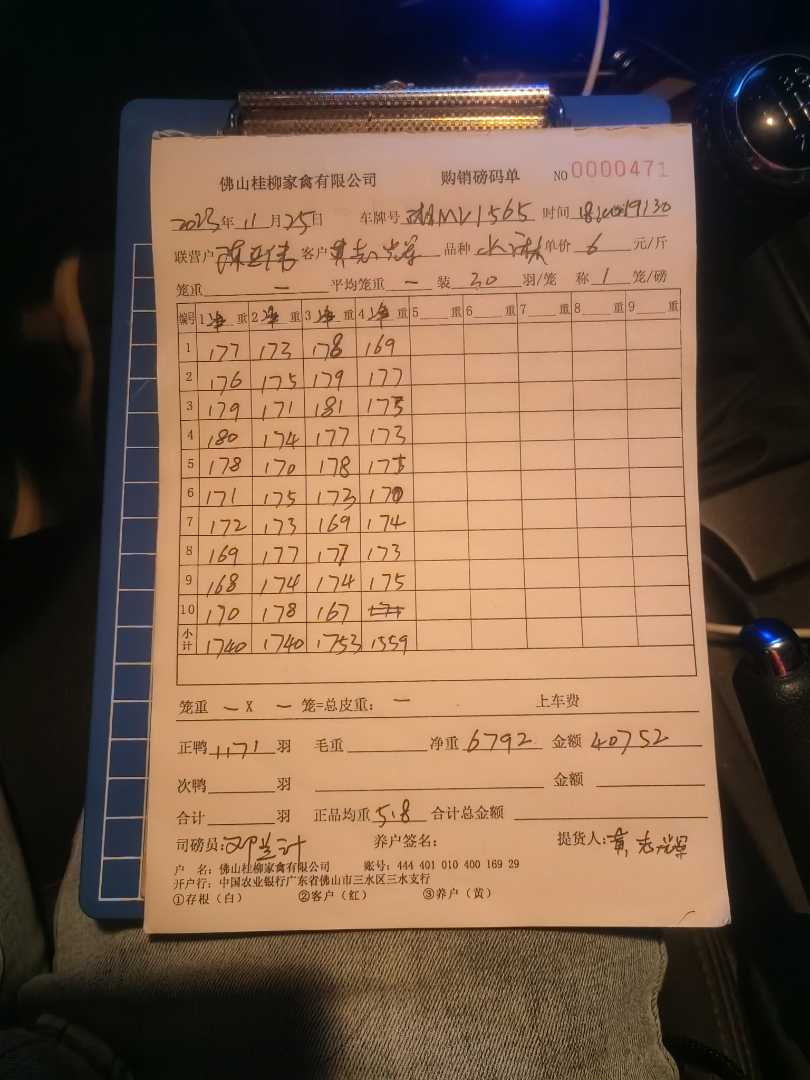 佛山桂柳家禽有限公司 购销磅码单 NO 0000471
2023年 11月 25日 车牌号 MV1565 时间 19:30
联营户 陈亚伟 客户 黄志 品种 单价 6 元/斤
笼重 一 平均笼重 一 装 30 羽/笼 称 1 笼/磅
编号 1 净 重 2 净 重 3 净 重 4 净 重 5 重 6 重 7 重 8 重 9 重
1 177 173 178 169
2 176 175 179 177
3 179 171 181 175
4 180 174 177 173
5 178 170 178 175
6 171 175 173 170
7 172 173 169 174
8 169 177 177 173
9 168 174 174 175
10 170 178 167
小计 1740 1740 1753 1559
笼重 一 X 一 笼=总皮重: 一 上车费
正鸭 1171 羽 毛重 净重 6792 金额 40752
次鸭 羽 金额
合计 羽 正品均重 5.8 合计总金额
司磅员: 邓兰计 养户签名: 提货人: 黄志
户 名: 佛山桂柳家禽有限公司 账号: 444 401 010 400 169 29
开户行: 中国农业银行广东省佛山市三水区三水支行
①存根(白) ②客户(红) ③养户(黄)